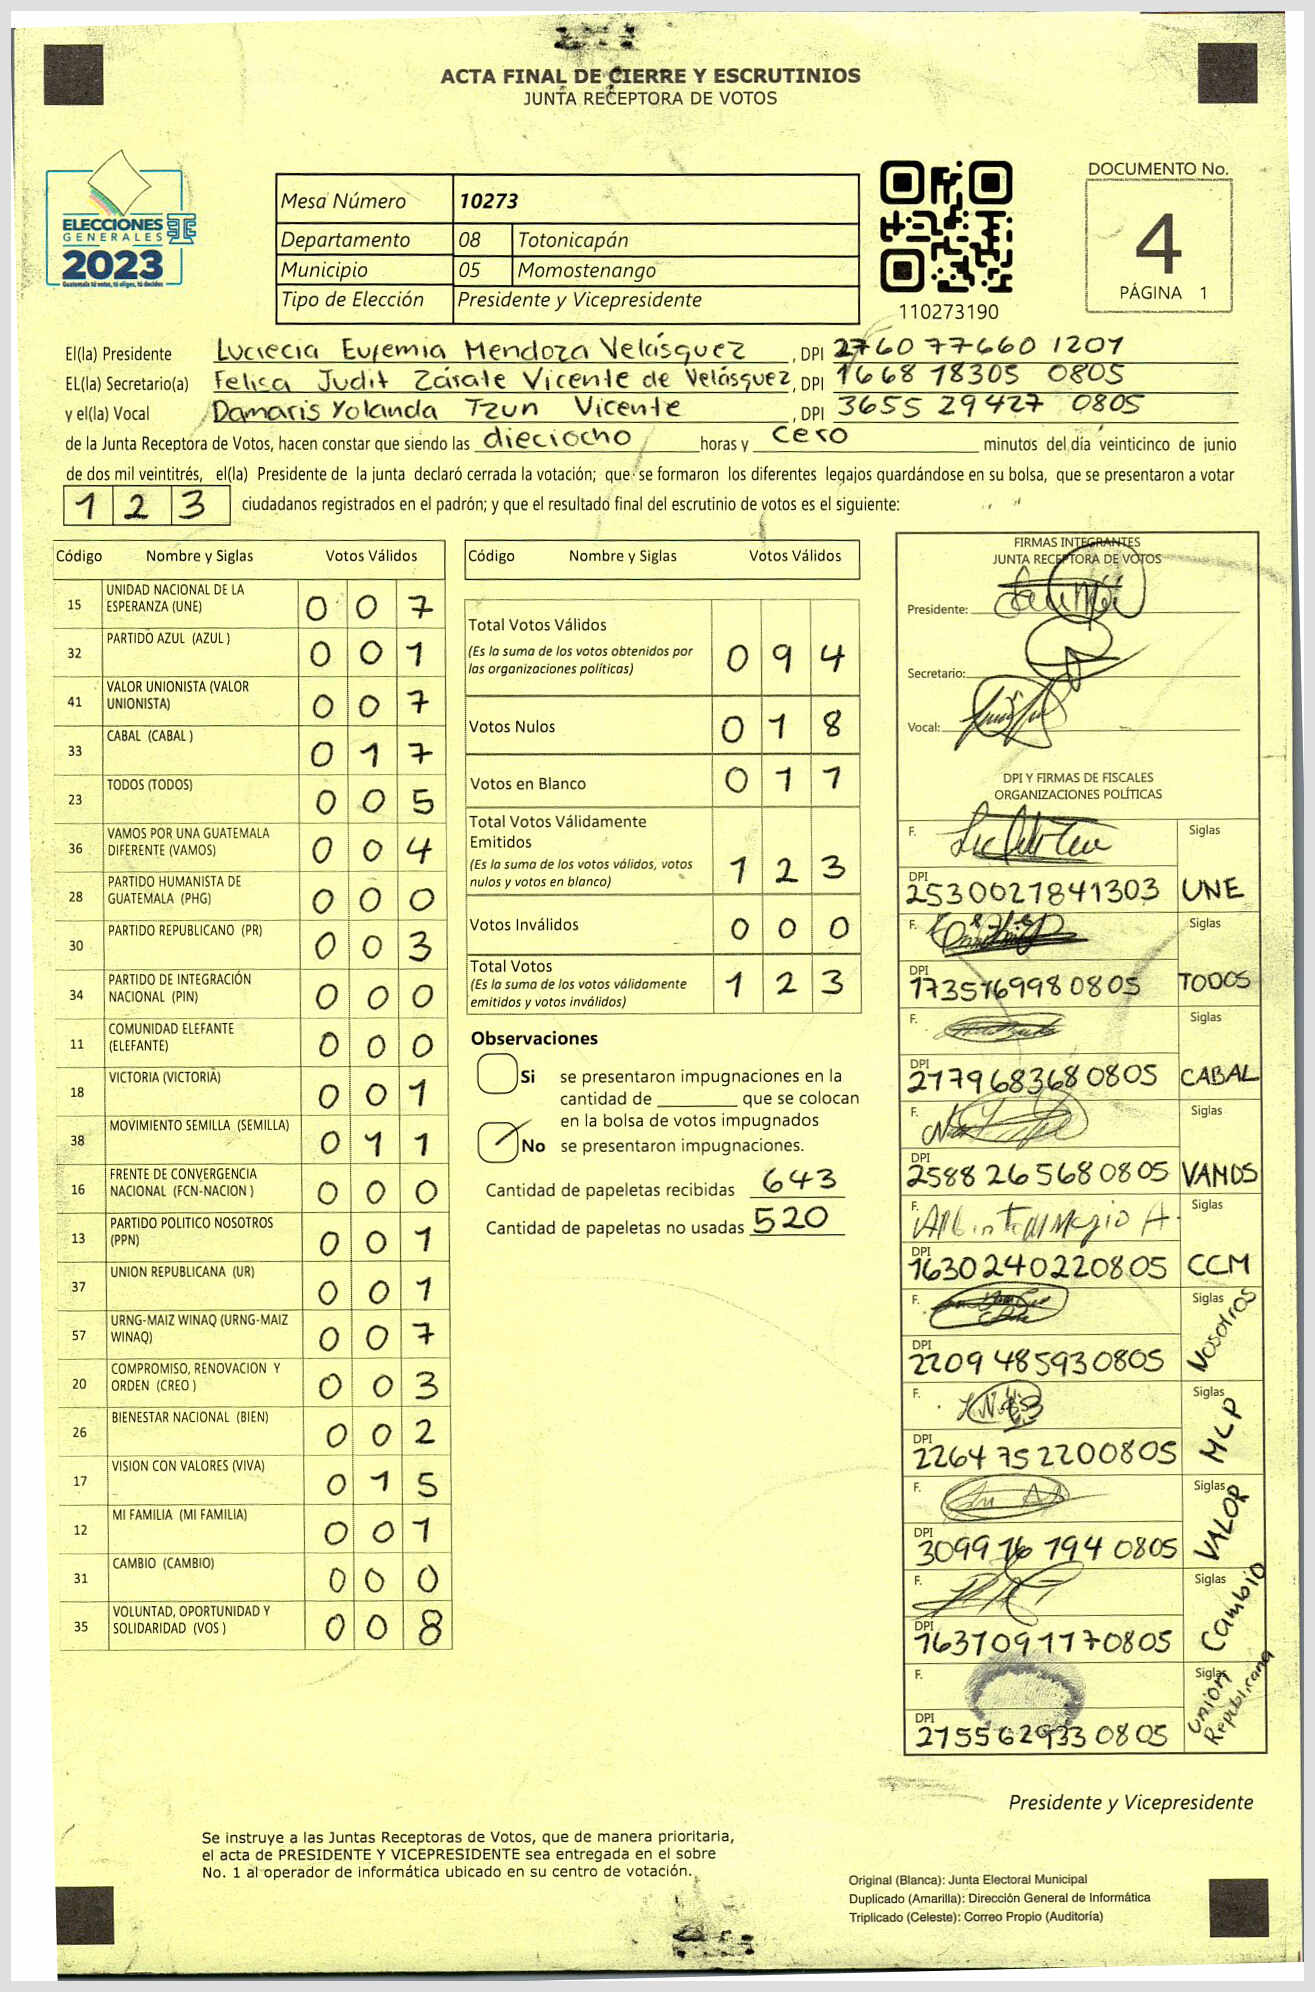 ACTA FINAL DE CIERRE Y ESCRUTINIOS
JUNTA RECEPTORA DE VOTOS
ELECCIONES
GENERALES
2023
Guatemala tú votas, tú eliges, tú decides
Mesa Número 10273
Departamento 08 Totonicapán
Municipio 05 Momostenango
Tipo de Elección Presidente y Vicepresidente
110273190
DOCUMENTO No.
4
PÁGINA 1
El(la) Presidente Lucrecia Eufemia Mendoza Velásquez, DPI 2760 77660 1201
EL(la) Secretario(a) Felisa Judit Zárate Vicente de Velásquez, DPI 1668 18305 0805
y el(la) Vocal Damaris Yolanda Tzun Vicente, DPI 3655 29427 0805
de la Junta Receptora de Votos, hacen constar que siendo las dieciocho horas y cero minutos del día veinticinco de junio
de dos mil veintitrés, el(la) Presidente de la junta declaró cerrada la votación; que se formaron los diferentes legajos guardándose en su bolsa, que se presentaron a votar
123 ciudadanos registrados en el padrón; y que el resultado final del escrutinio de votos es el siguiente:
Código Nombre y Siglas Votos Válidos
15 UNIDAD NACIONAL DE LA ESPERANZA (UNE) 0 0 7
32 PARTIDO AZUL (AZUL ) 0 0 1
41 VALOR UNIONISTA (VALOR UNIONISTA) 0 0 7
33 CABAL (CABAL ) 0 1 7
23 TODOS (TODOS) 0 0 5
36 VAMOS POR UNA GUATEMALA DIFERENTE (VAMOS) 0 0 4
28 PARTIDO HUMANISTA DE GUATEMALA (PHG) 0 0 0
30 PARTIDO REPUBLICANO (PR) 0 0 3
34 PARTIDO DE INTEGRACIÓN NACIONAL (PIN) 0 0 0
11 COMUNIDAD ELEFANTE (ELEFANTE) 0 0 0
18 VICTORIA (VICTORIA) 0 0 1
38 MOVIMIENTO SEMILLA (SEMILLA) 0 1 1
16 FRENTE DE CONVERGENCIA NACIONAL (FCN-NACION ) 0 0 0
13 PARTIDO POLITICO NOSOTROS (PPN) 0 0 1
37 UNION REPUBLICANA (UR) 0 0 1
57 URNG-MAIZ WINAQ (URNG-MAIZ WINAQ) 0 0 7
20 COMPROMISO, RENOVACION Y ORDEN (CREO ) 0 0 3
26 BIENESTAR NACIONAL (BIEN) 0 0 2
17 VISION CON VALORES (VIVA) 0 1 5
12 MI FAMILIA (MI FAMILIA) 0 0 1
31 CAMBIO (CAMBIO) 0 0 0
35 VOLUNTAD, OPORTUNIDAD Y SOLIDARIDAD (VOS ) 0 0 8
Código Nombre y Siglas Votos Válidos
Total Votos Válidos
(Es la suma de los votos obtenidos por
las organizaciones políticas) 0 9 4
Votos Nulos 0 1 8
Votos en Blanco 0 1 1
Total Votos Válidamente
Emitidos
(Es la suma de los votos válidos, votos
nulos y votos en blanco) 1 2 3
Votos Inválidos 0 0 0
Total Votos
(Es la suma de los votos válidamente
emitidos y votos inválidos) 1 2 3
Observaciones
Si se presentaron impugnaciones en la
cantidad de ________ que se colocan
en la bolsa de votos impugnados
No se presentaron impugnaciones.
Cantidad de papeletas recibidas 643
Cantidad de papeletas no usadas 520
FIRMAS INTEGRANTES
JUNTA RECEPTORA DE VOTOS
Presidente:
Secretario:
Vocal:
DPI Y FIRMAS DE FISCALES
ORGANIZACIONES POLÍTICAS
F. Siglas
DPI 2530021841303 UNE
F. Siglas
DPI 1735169980805 TODOS
F. Siglas
DPI 2179683680805 CABAL
F. Siglas
DPI 2588 26568 0805 VAMOS
F. Siglas
DPI 1630240220805 CCM
F. Siglas
DPI 2209 48593 0805 Nosotros
F. Siglas
DPI 2264 75220 0805 MLP
F. Siglas
DPI 3099 16 194 0805 VALOR
F. Siglas
DPI 1637091170805 Cambio
F. Siglas
DPI 2155629330805 Union Republicana
Presidente y Vicepresidente
Se instruye a las Juntas Receptoras de Votos, que de manera prioritaria,
el acta de PRESIDENTE Y VICEPRESIDENTE sea entregada en el sobre
No. 1 al operador de informática ubicado en su centro de votación.
Original (Blanca): Junta Electoral Municipal
Duplicado (Amarilla): Dirección General de Informática
Triplicado (Celeste): Correo Propio (Auditoría)